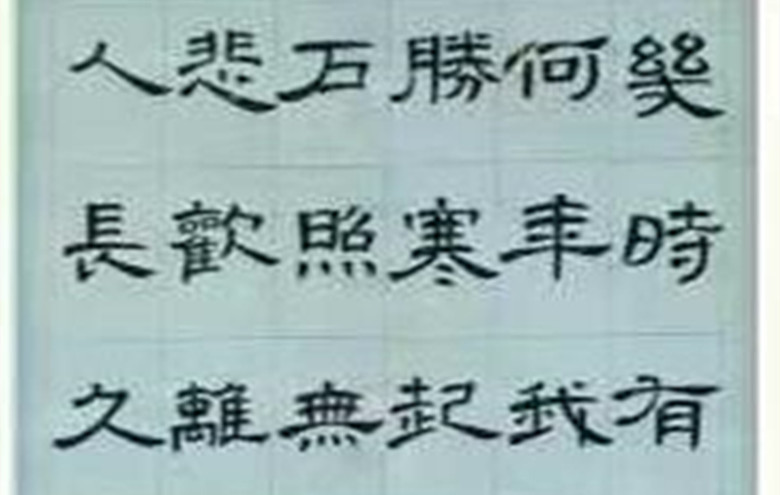 幾時有
何年我
勝寒起
石照無
悲歡離
人長久